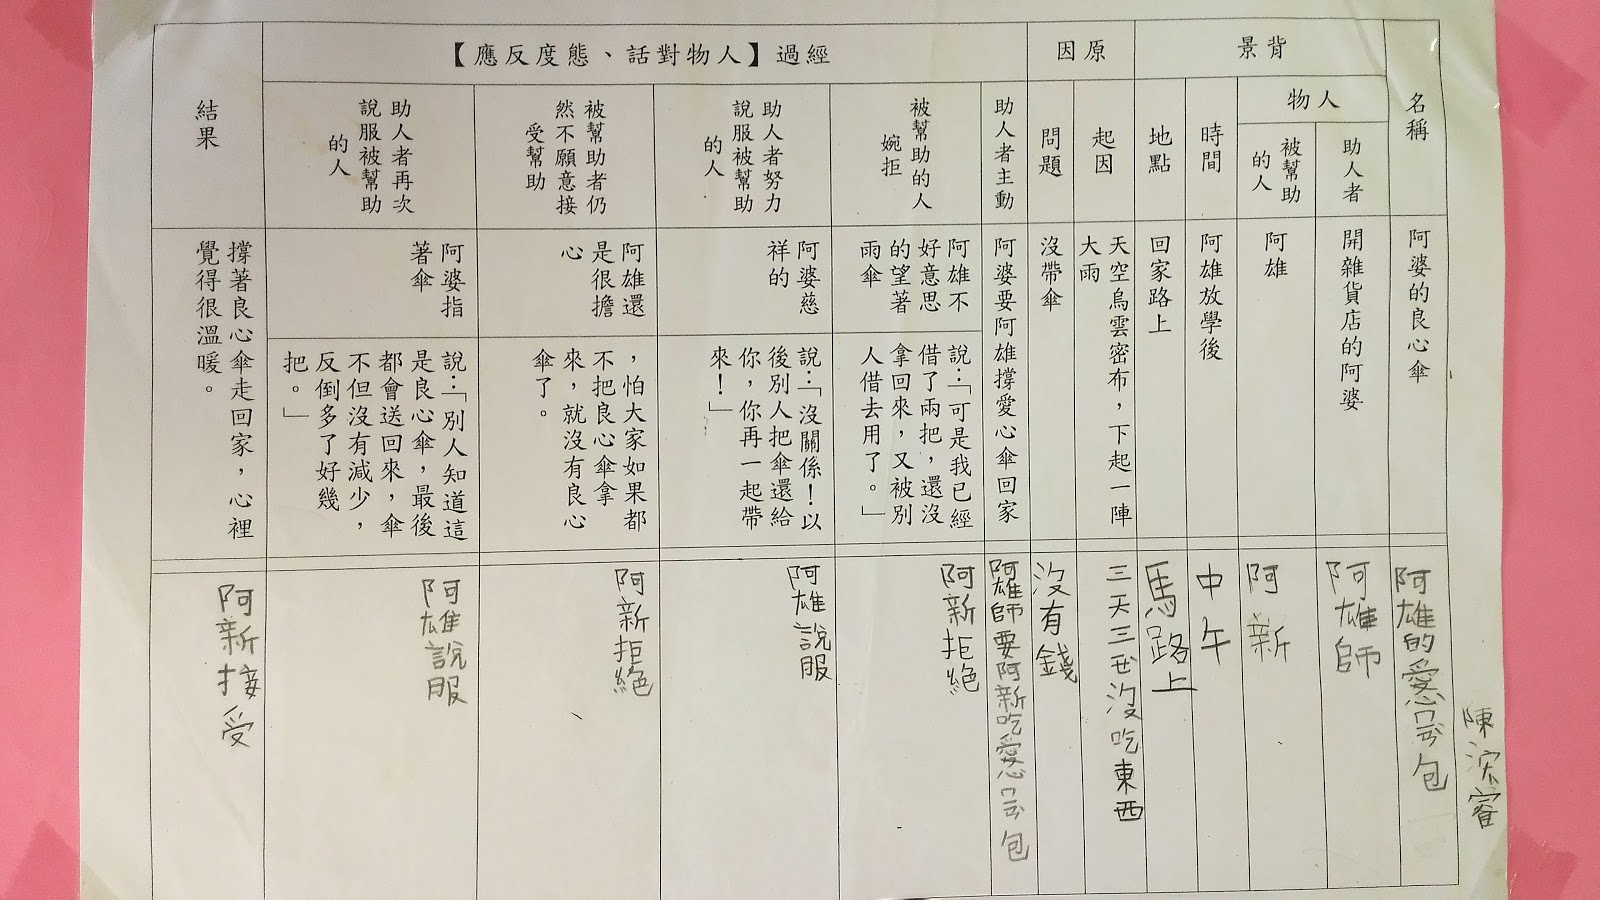 名稱
背景
人物
助人者
被幫助
的人
時間
地點
原因
起因
問題
經過【人物對話、態度反應】
助人者主動
被幫助的人
婉拒
助人者努力
說服被幫助
的人
被幫助者仍
然不願意接
受幫助
助人者再次
說服被幫助
的人
結果
阿婆的良心傘
開雜貨店的阿婆
阿雄
阿雄放學後
回家路上
天空烏雲密布，下起一陣
大雨
沒帶傘
阿婆要阿雄撐愛心傘回家
阿雄不
好意思
的望著
雨傘
說：「可是我已經
借了兩把，還沒
拿回來，又被別
人借去用了。」
阿婆慈
祥的
說：「沒關係！以
後別人把傘還給
你，你再一起帶
來！」
阿雄還
是很擔
心
，怕大家如果都
不把良心傘拿
來，就沒有良心
傘了。
阿婆指
著傘
說：「別人知道這
是良心傘，最後
都會送回來，傘
不但沒有減少，
反倒多了好幾
把。」
撐著良心傘走回家，心裡
覺得很溫暖。
阿雄的愛心ㄇㄧㄢˋ包
阿雄師
阿新
中午
馬路上
三天三世沒吃東西
沒有錢
阿雄師要阿新吃愛心ㄇㄧㄢˋ包
阿新拒絕
阿雄說服
阿新拒絕
阿雄說服
阿新接受
陳